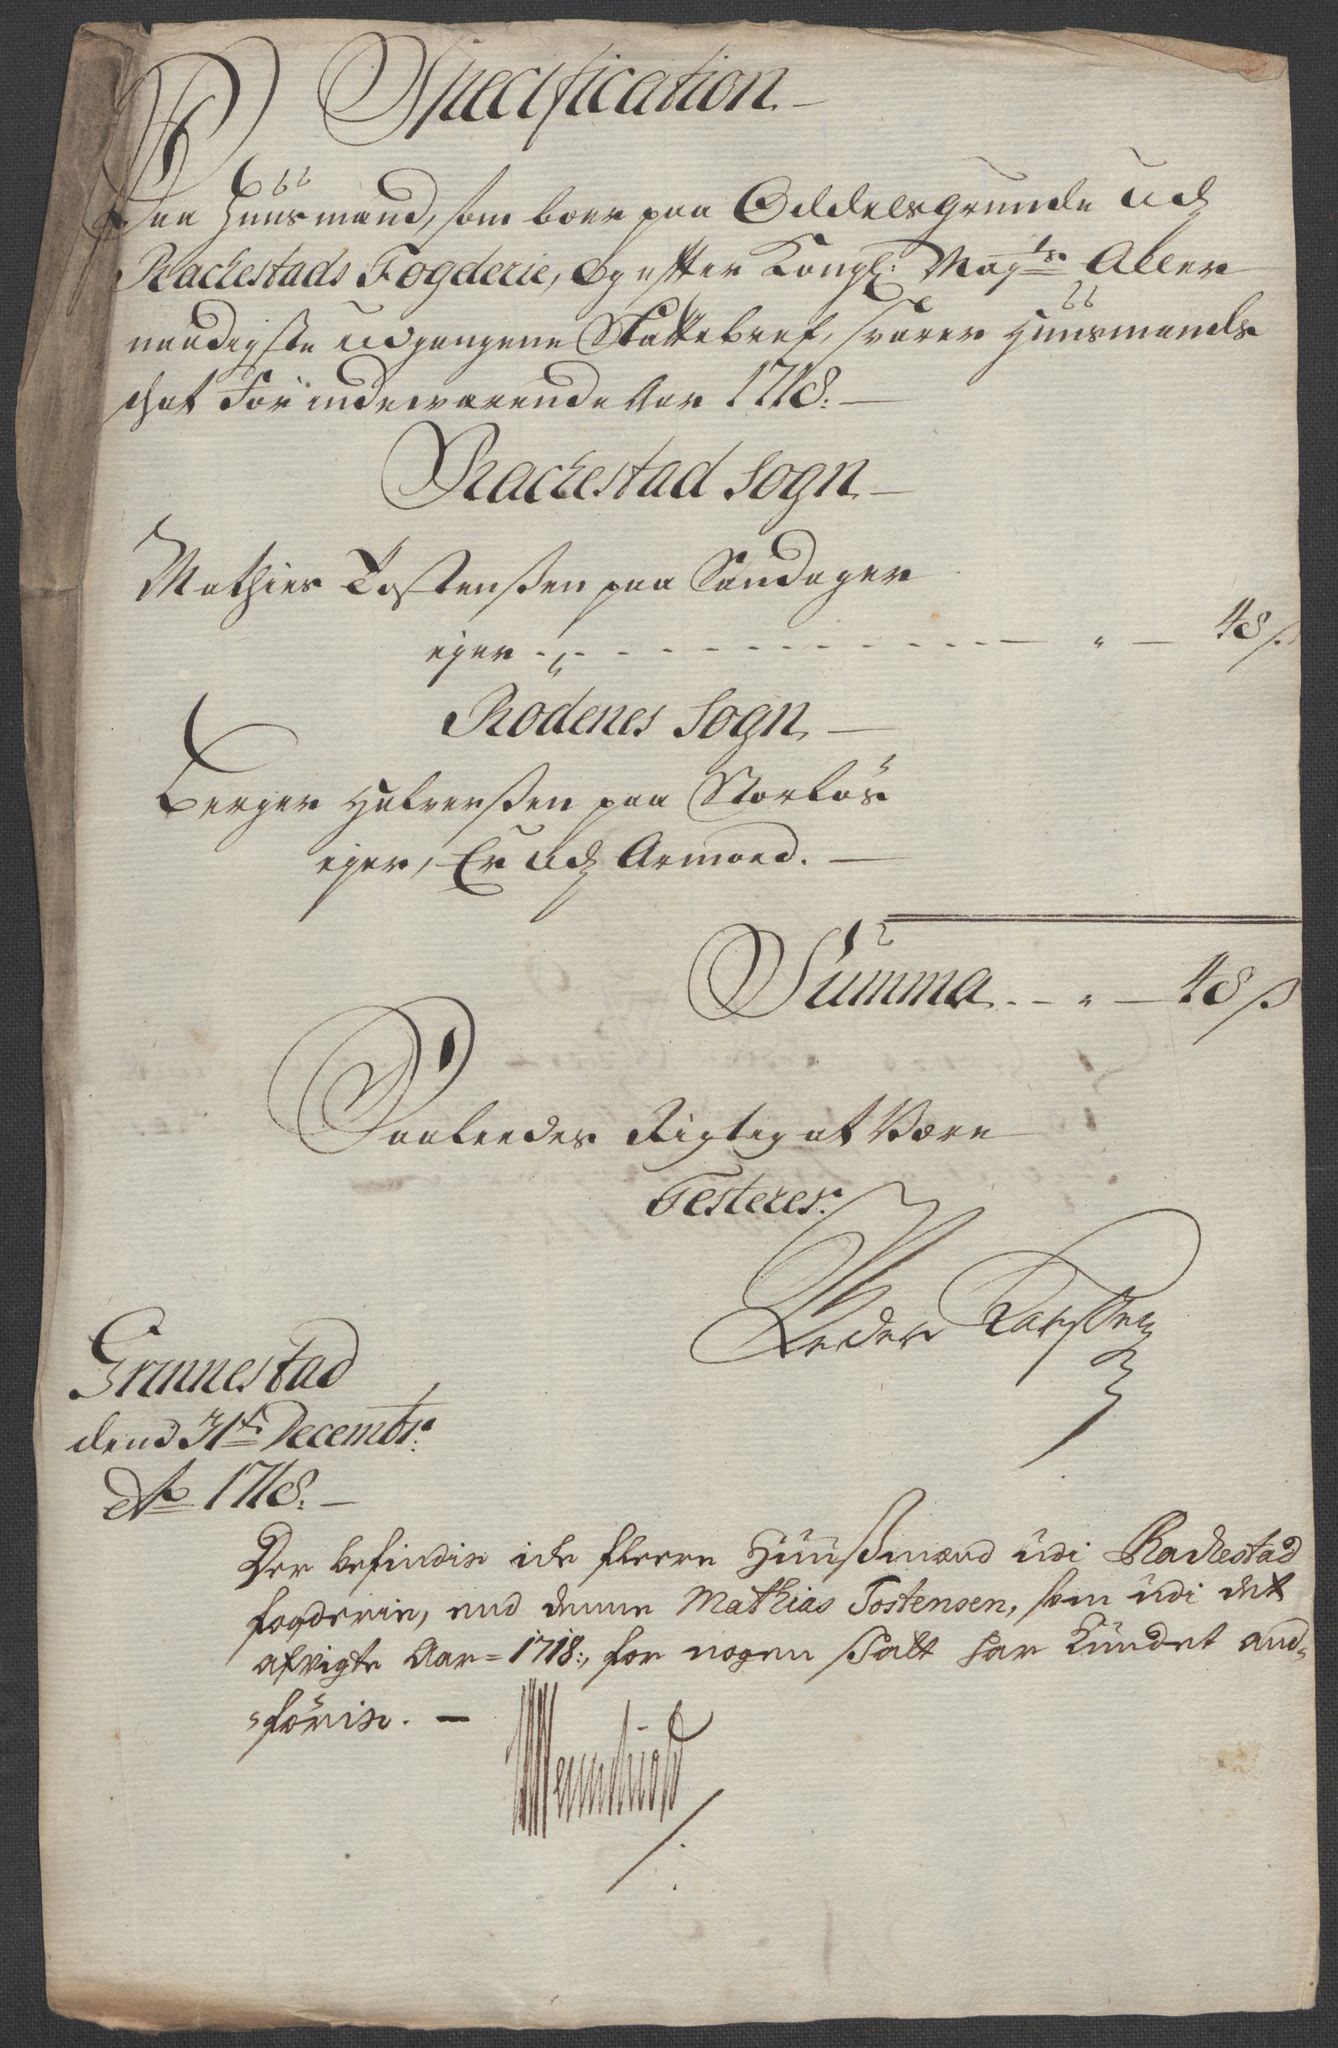 Specification
Paa Huusmænd, som boer paa Oddelsgrunde udj
Rachestads Fogderie, Og efter Kongl: May:ts Aller
naadigste udgangene Skattebref, svarer Huusmands
schat For indeværende Aar 1718:
Rachestad Sogn
Mathies Tostensen paa Sandager
eger - „ - - - „ - 48 s
Rödenes Sogn
Berger Halvorsen paa
eger, Er udj Armoed.
Summa - „ - 48 s
Saaleedes Rigtig at Være
Testeres
Peder Larssen
Grinnestad
dend 31te Decembr:
Ao 1718.
Der befindis icke fleere Huusmænd udi Rackestad
fogderie, end denne Mathias Tostensen, som udi det
afvigte Aar 1718:, for nogen Skatt har kundet and-
föris.